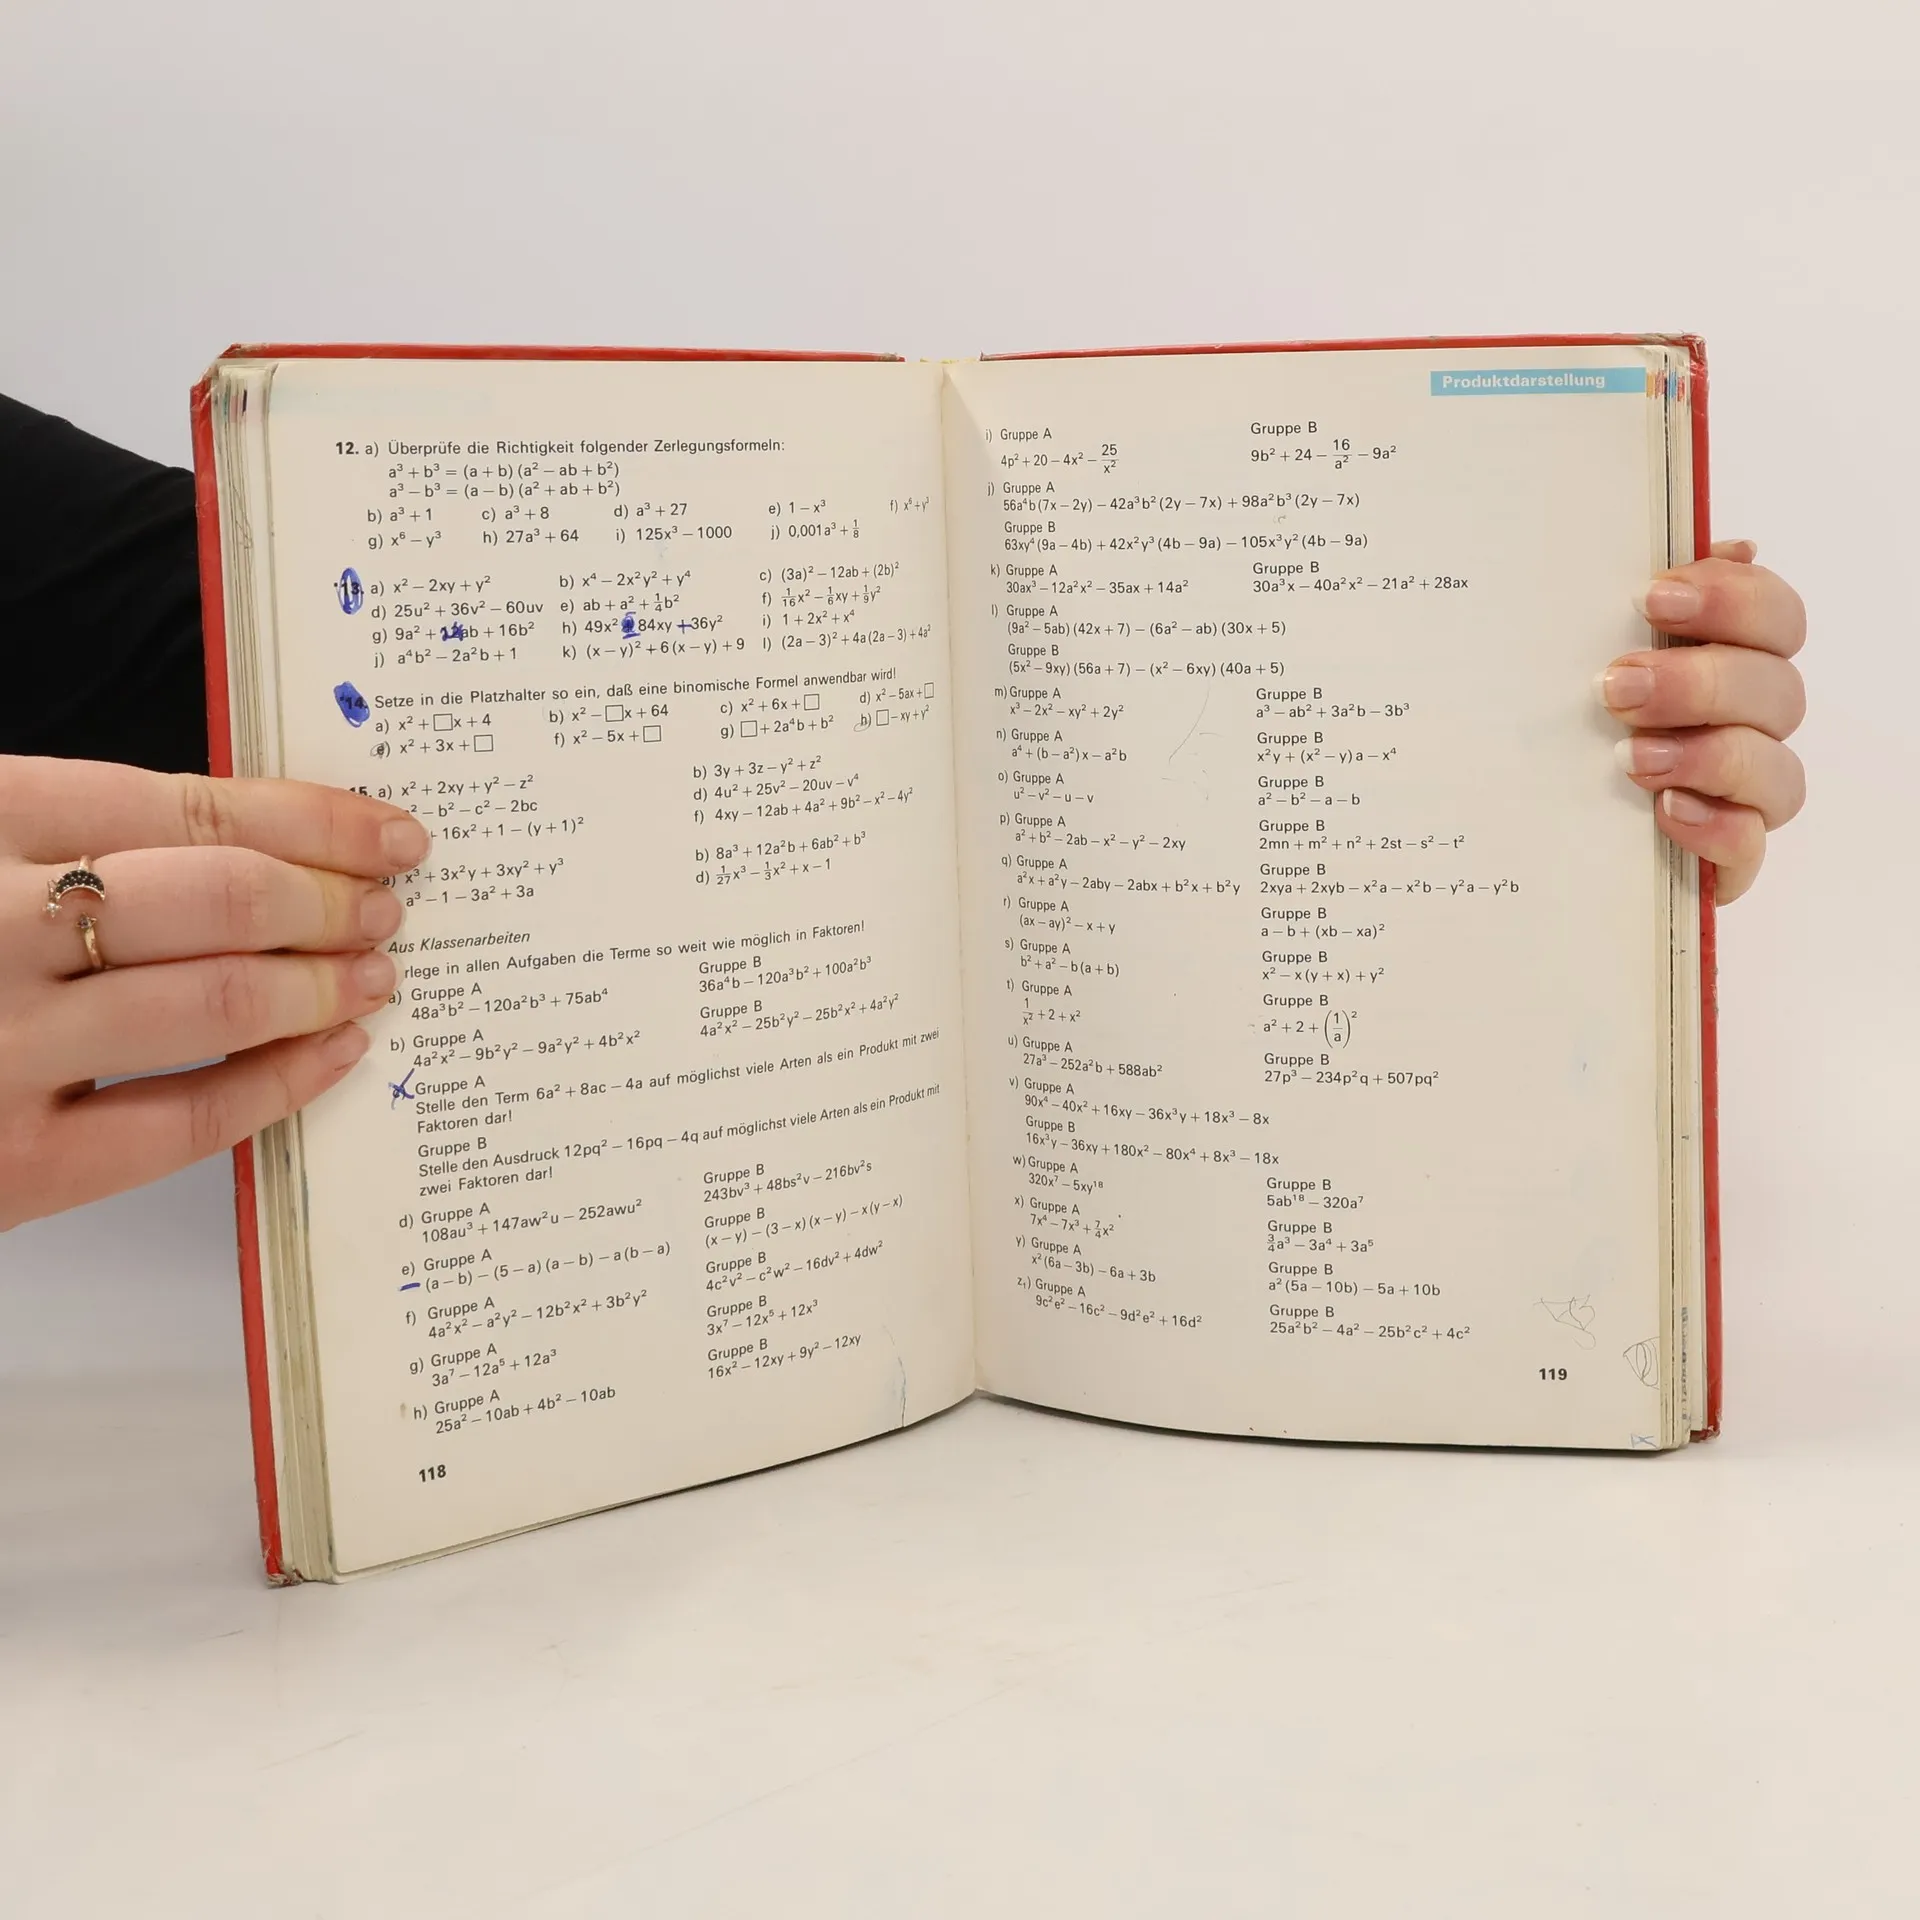 12. a) Überprüfe die Richtigkeit folgender Zerlegungsformeln:
a³ + b³ = (a + b) (a² − ab + b²)
a³ − b³ = (a − b) (a² + ab + b²)
b) a³ + 1 c) a³ + 8 d) a³ + 27 e) 1 − x³ f) x⁶ + y³
g) x⁶ − y³ h) 27a³ + 64 i) 125x³ − 1000 j) 0,001a³ + 1/8
*13. a) x² − 2xy + y² b) x⁴ − 2x²y² + y⁴ c) (3a)² − 12ab + (2b)²
d) 25u² + 36v² − 60uv e) ab + a² + 1/4b² f) 1/16x² − 1/6xy + 1/9y²
g) 9a² + 24ab + 16b² h) 49x² 84xy + 36y² i) 1 + 2x² + x⁴
j) a⁴b² − 2a²b + 1 k) (x − y)² + 6(x − y) + 9 l) (2a − 3)² + 4a(2a − 3) + 4a²
*14. Setze in die Platzhalter so ein, daß eine binomische Formel anwendbar wird!
a) x² + □x + 4 b) x² − □x + 64 c) x² + 6x + □ d) x² − 5ax + □
e) x² + 3x + □ f) x² − 5x + □ g) □ + 2a⁴b + b² h) □ − xy + y²
15. a) x² + 2xy + y² − z² b) 3y + 3z − y² + z²
² − b² − c² − 2bc d) 4u² + 25v² − 20uv − v⁴
+ 16x² + 1 − (y + 1)² f) 4xy − 12ab + 4a² + 9b² − x² − 4y²
a) x³ + 3x²y + 3xy² + y³ b) 8a³ + 12a²b + 6ab² + b³
a³ − 1 − 3a² + 3a d) 1/27x³ − 1/3x² + x − 1
Aus Klassenarbeiten
rlege in allen Aufgaben die Terme so weit wie möglich in Faktoren!
a) Gruppe A Gruppe B
48a³b² − 120a²b³ + 75ab⁴ 36a⁴b − 120a³b² + 100a²b³
b) Gruppe A Gruppe B
4a²x² − 9b²y² − 9a²y² + 4b²x² 4a²x² − 25b²y² − 25b²x² + 4a²y²
c) Gruppe A
Stelle den Term 6a² + 8ac − 4a auf möglichst viele Arten als ein Produkt mit zwei
Faktoren dar!
Gruppe B
Stelle den Ausdruck 12pq² − 16pq − 4q auf möglichst viele Arten als ein Produkt mit
zwei Faktoren dar!
d) Gruppe A Gruppe B
108au³ + 147aw²u − 252awu² 243bv³ + 48bs²v − 216bv²s
e) Gruppe A Gruppe B
(a − b) − (5 − a) (a − b) − a(b − a) (x − y) − (3 − x) (x − y) − x(y − x)
f) Gruppe A Gruppe B
4a²x² − a²y² − 12b²x² + 3b²y² 4c²v² − c²w² − 16dv² + 4dw²
g) Gruppe A Gruppe B
3a⁷ − 12a⁵ + 12a³ 3x⁷ − 12x⁵ + 12x³
h) Gruppe A Gruppe B
25a² − 10ab + 4b² − 10ab 16x² − 12xy + 9y² − 12xy
118
Produktdarstellung
i) Gruppe A Gruppe B
4p² + 20 − 4x² − 25/x² 9b² + 24 − 16/a² − 9a²
j) Gruppe A
56a⁴b(7x − 2y) − 42a³b²(2y − 7x) + 98a²b³(2y − 7x)
Gruppe B
63xy⁴(9a − 4b) + 42x²y³(4b − 9a) − 105x³y²(4b − 9a)
k) Gruppe A Gruppe B
30ax³ − 12a²x² − 35ax + 14a² 30a³x − 40a²x² − 21a² + 28ax
l) Gruppe A
(9a² − 5ab) (42x + 7) − (6a² − ab) (30x + 5)
Gruppe B
(5x² − 9xy) (56a + 7) − (x² − 6xy) (40a + 5)
m) Gruppe A Gruppe B
x³ − 2x² − xy² + 2y² a³ − ab² + 3a²b − 3b³
n) Gruppe A Gruppe B
a⁴ + (b − a²)x − a²b x²y + (x² − y)a − x⁴
o) Gruppe A Gruppe B
u² − v² − u − v a² − b² − a − b
p) Gruppe A Gruppe B
a² + b² − 2ab − x² − y² − 2xy 2mn + m² + n² + 2st − s² − t²
q) Gruppe A Gruppe B
a²x + a²y − 2aby − 2abx + b²x + b²y 2xya + 2xyb − x²a − x²b − y²a − y²b
r) Gruppe A Gruppe B
(ax − ay)² − x + y a − b + (xb − xa)²
s) Gruppe A Gruppe B
b² + a² − b(a + b) x² − x(y + x) + y²
t) Gruppe A Gruppe B
1/x² + 2 + x² a² + 2 + (1/a)²
u) Gruppe A Gruppe B
27a³ − 252a²b + 588ab² 27p³ − 234p²q + 507pq²
v) Gruppe A
90x⁴ − 40x² + 16xy − 36x³y + 18x³ − 8x
Gruppe B
16x³y − 36xy + 180x² − 80x⁴ + 8x³ − 18x
w) Gruppe A Gruppe B
320x⁷ − 5xy¹⁸ 5ab¹⁸ − 320a⁷
x) Gruppe A Gruppe B
7x⁴ − 7x³ + 7/4x² 3/4a³ − 3a⁴ + 3a⁵
y) Gruppe A Gruppe B
x²(6a − 3b) − 6a + 3b a²(5a − 10b) − 5a + 10b
z₁) Gruppe A Gruppe B
9c²e² − 16c² − 9d²e² + 16d² 25a²b² − 4a² − 25b²c² + 4c²
119